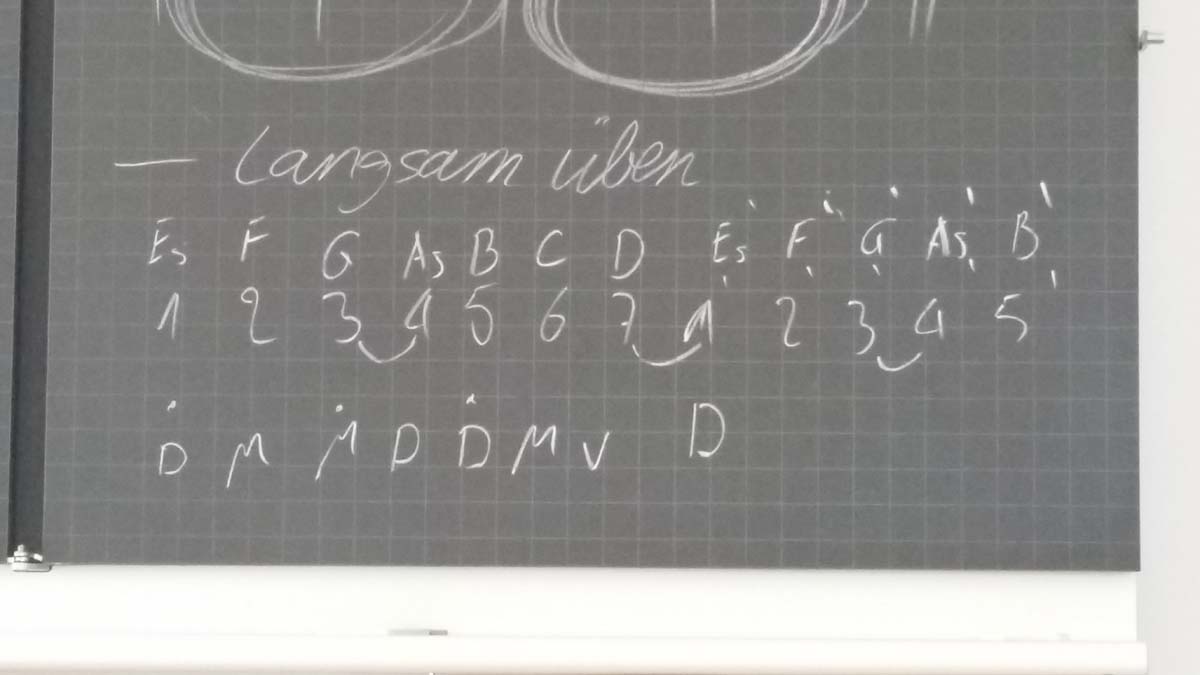 — Langsam üben
Es F G As B C D Es' F' G' As' B'
1 2 3 4 5 6 7 1' 2' 3' 4' 5'
Ḋ M Ṁ D Ḋ M V D